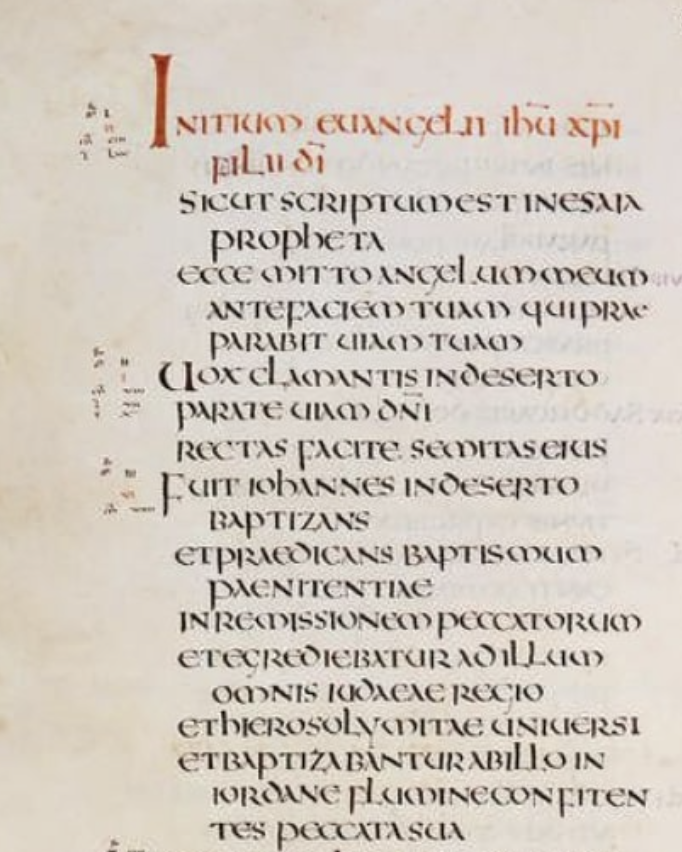 INITIUM EUANGELII IHU XPI
FILII DI
SICUT SCRIPTUM EST IN ESAIA
PROPHETA
ECCE MITTO ANGELUM MEUM
ANTE FACIEM TUAM QUI PRAE
PARABIT UIAM TUAM
UOX CLAMANTIS IN DESERTO
PARATE UIAM DNI
RECTAS FACITE SEMITAS EIUS
FUIT IOHANNES IN DESERTO
BAPTIZANS
ET PRAEDICANS BAPTISMUM
PAENITENTIAE
IN REMISSIONEM PECCATORUM
ET EGREDIEBATUR AD ILLUM
OMNIS IUDAEAE REGIO
ET HIEROSOLYMITAE UNIUERSI
ET BAPTIZABANTUR AB ILLO IN
IORDANE FLUMINE CONFITEN
TES PECCATA SUA